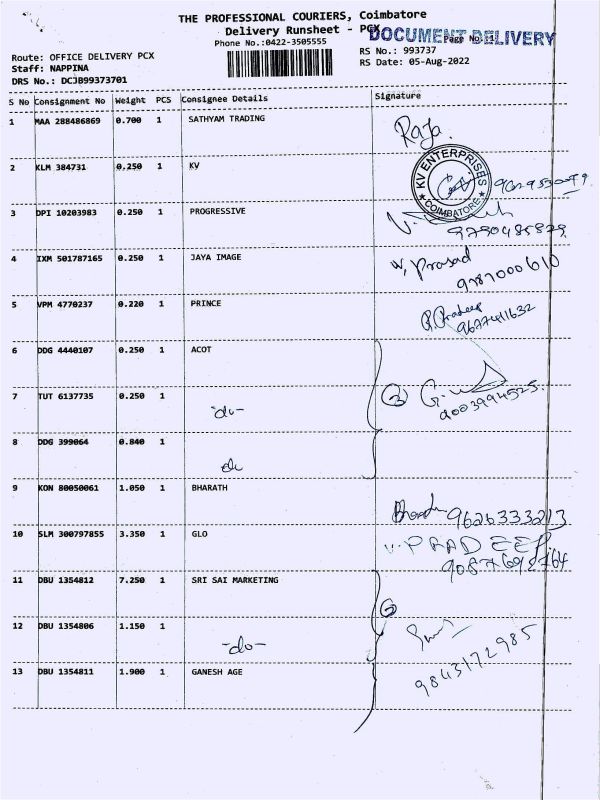 THE PROFESSIONAL COURIERS, Coimbatore
Delivery Runsheet - PCX
DOCUMENT DELIVERY
Page No.:1
Phone No.:0422-3505555
Route: OFFICE DELIVERY PCX
Staff: NAPPINA
DRS No.: DCJB99373701
RS No.: 993737
RS Date: 05-Aug-2022
S No Consignment No Weight PCS Consignee Details Signature
1 MAA 288486869 0.700 1 SATHYAM TRADING Raja.
2 KLM 384731 0.250 1 KV
KV ENTERPRISES
COIMBATORE
3 DPI 10203983 0.250 1 PROGRESSIVE
9790485829
4 IXM 501787165 0.250 1 JAYA IMAGE
W. Prasad
9787000610
5 VPM 4770237 0.220 1 PRINCE
P. Pradeep
9677411632
6 DDG 4440107 0.250 1 ACOT
7 TUT 6137735 0.250 1 -do-
3
9003994525
8 DDG 399064 0.840 1 do
9 KON 80050061 1.050 1 BHARATH
9626333213
10 SLM 300797855 3.350 1 GLO
V. PRADEEP
11 DBU 1354812 7.250 1 SRI SAI MARKETING
12 DBU 1354806 1.150 1 -do-
9843172985
13 DBU 1354811 1.900 1 GANESH AGE